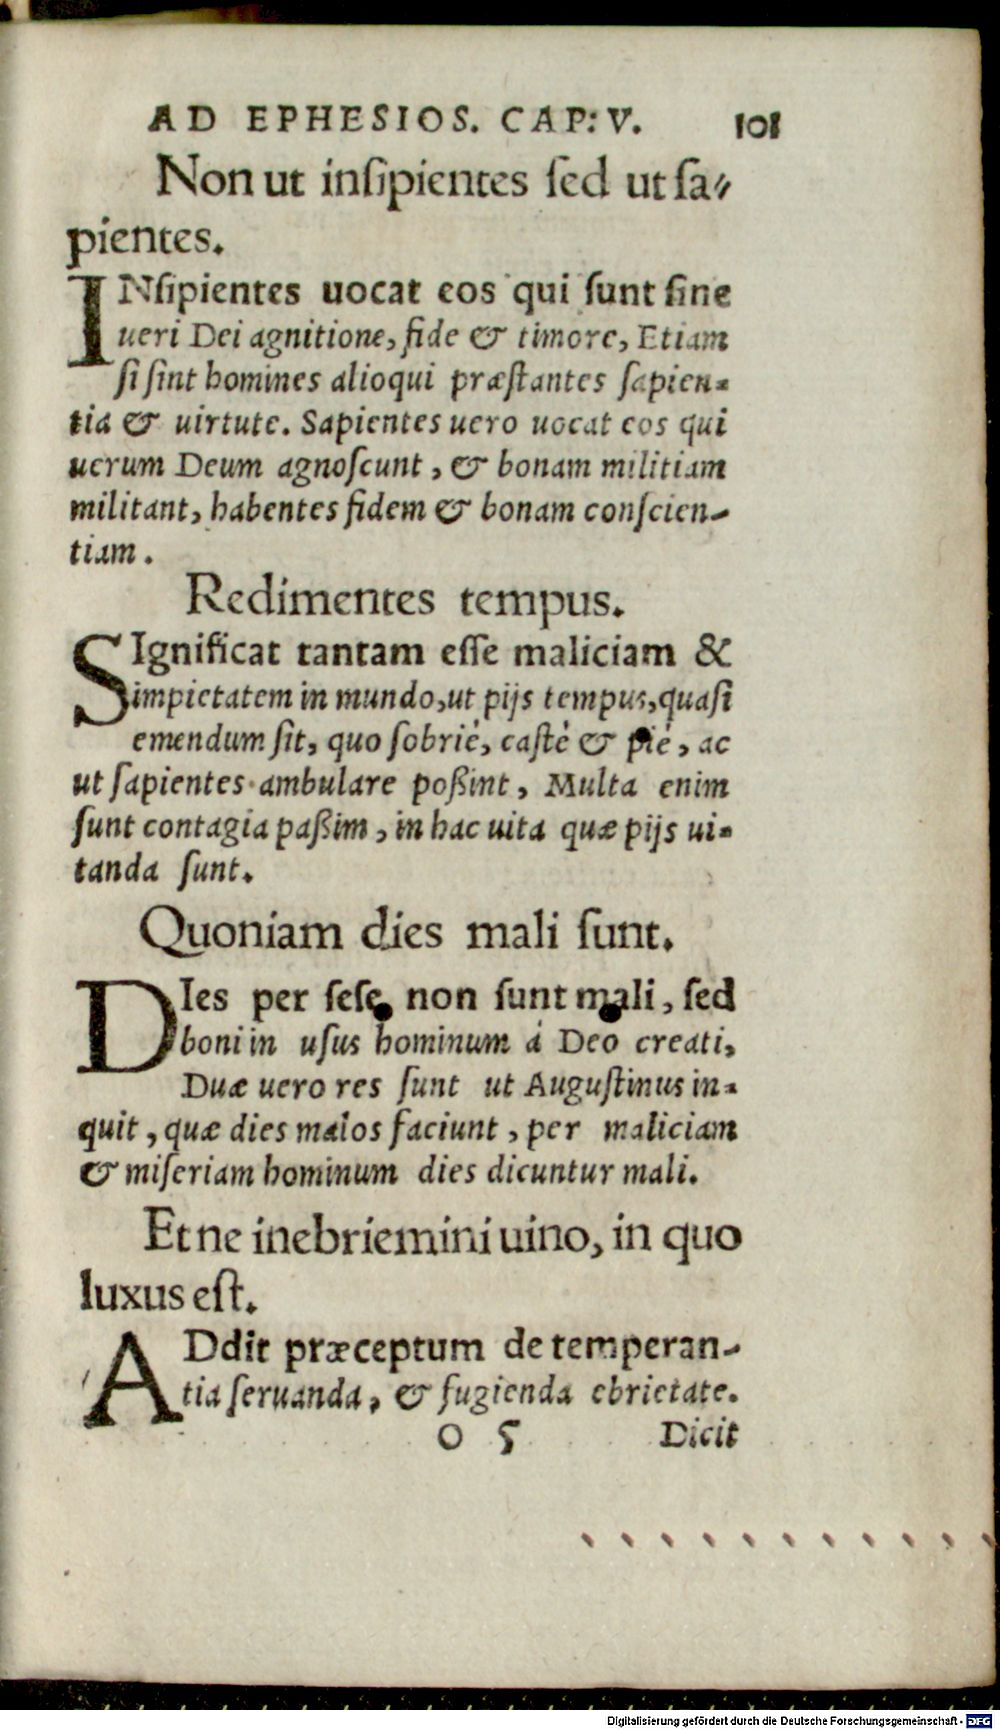 AD EPHESIOS. CAP: V. 101
Non ut inſipientes ſed ut ſa⸗
pientes.
INſipientes uocat eos qui ſunt ſine
ueri Dei agnitione, fide & timore, Etiam
ſi ſint homines alioqui præſtantes ſapien⸗
tia & uirtute. Sapientes uero uocat eos qui
uerum Deum agnoſcunt, & bonam militiam
militant, habentes fidem & bonam conſcien-
tiam.
Redimentes tempus.
SIgnificat tantam eſſe maliciam &
impietatem in mundo, ut pijs tempus, quaſi
emendum ſit, quo ſobrié, caſté & pié, ac
ut ſapientes ambulare poßint, Multa enim
ſunt contagia paßim, in hac uita quæ pijs ui⸗
tanda ſunt.
Quoniam dies mali ſunt.
DIes per ſeſe non ſunt mali, ſed
boni in uſus hominum á Deo creati,
Duæ uero res ſunt ut Auguſtinus in⸗
quit, quæ dies malos faciunt, per maliciam
& miſeriam hominum dies dicuntur mali.
Et ne inebriemini uino, in quo
luxus eſt.
ADdit præceptum de temperan-
tia ſeruanda, & fugienda ebrietate.
O 5 Dicit
Digitalisierung gefördert durch die Deutsche Forschungsgemeinschaft - DFG